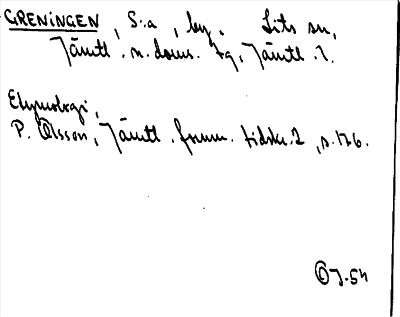 GRENINGEN, S:a, by. Lits sn,
Jämtl. n. doms. tg, Jämtl. l.
Etymologi,
P. Olsson, Jämtl. fornm. tidskr. 2, s. 176.
OJ-54